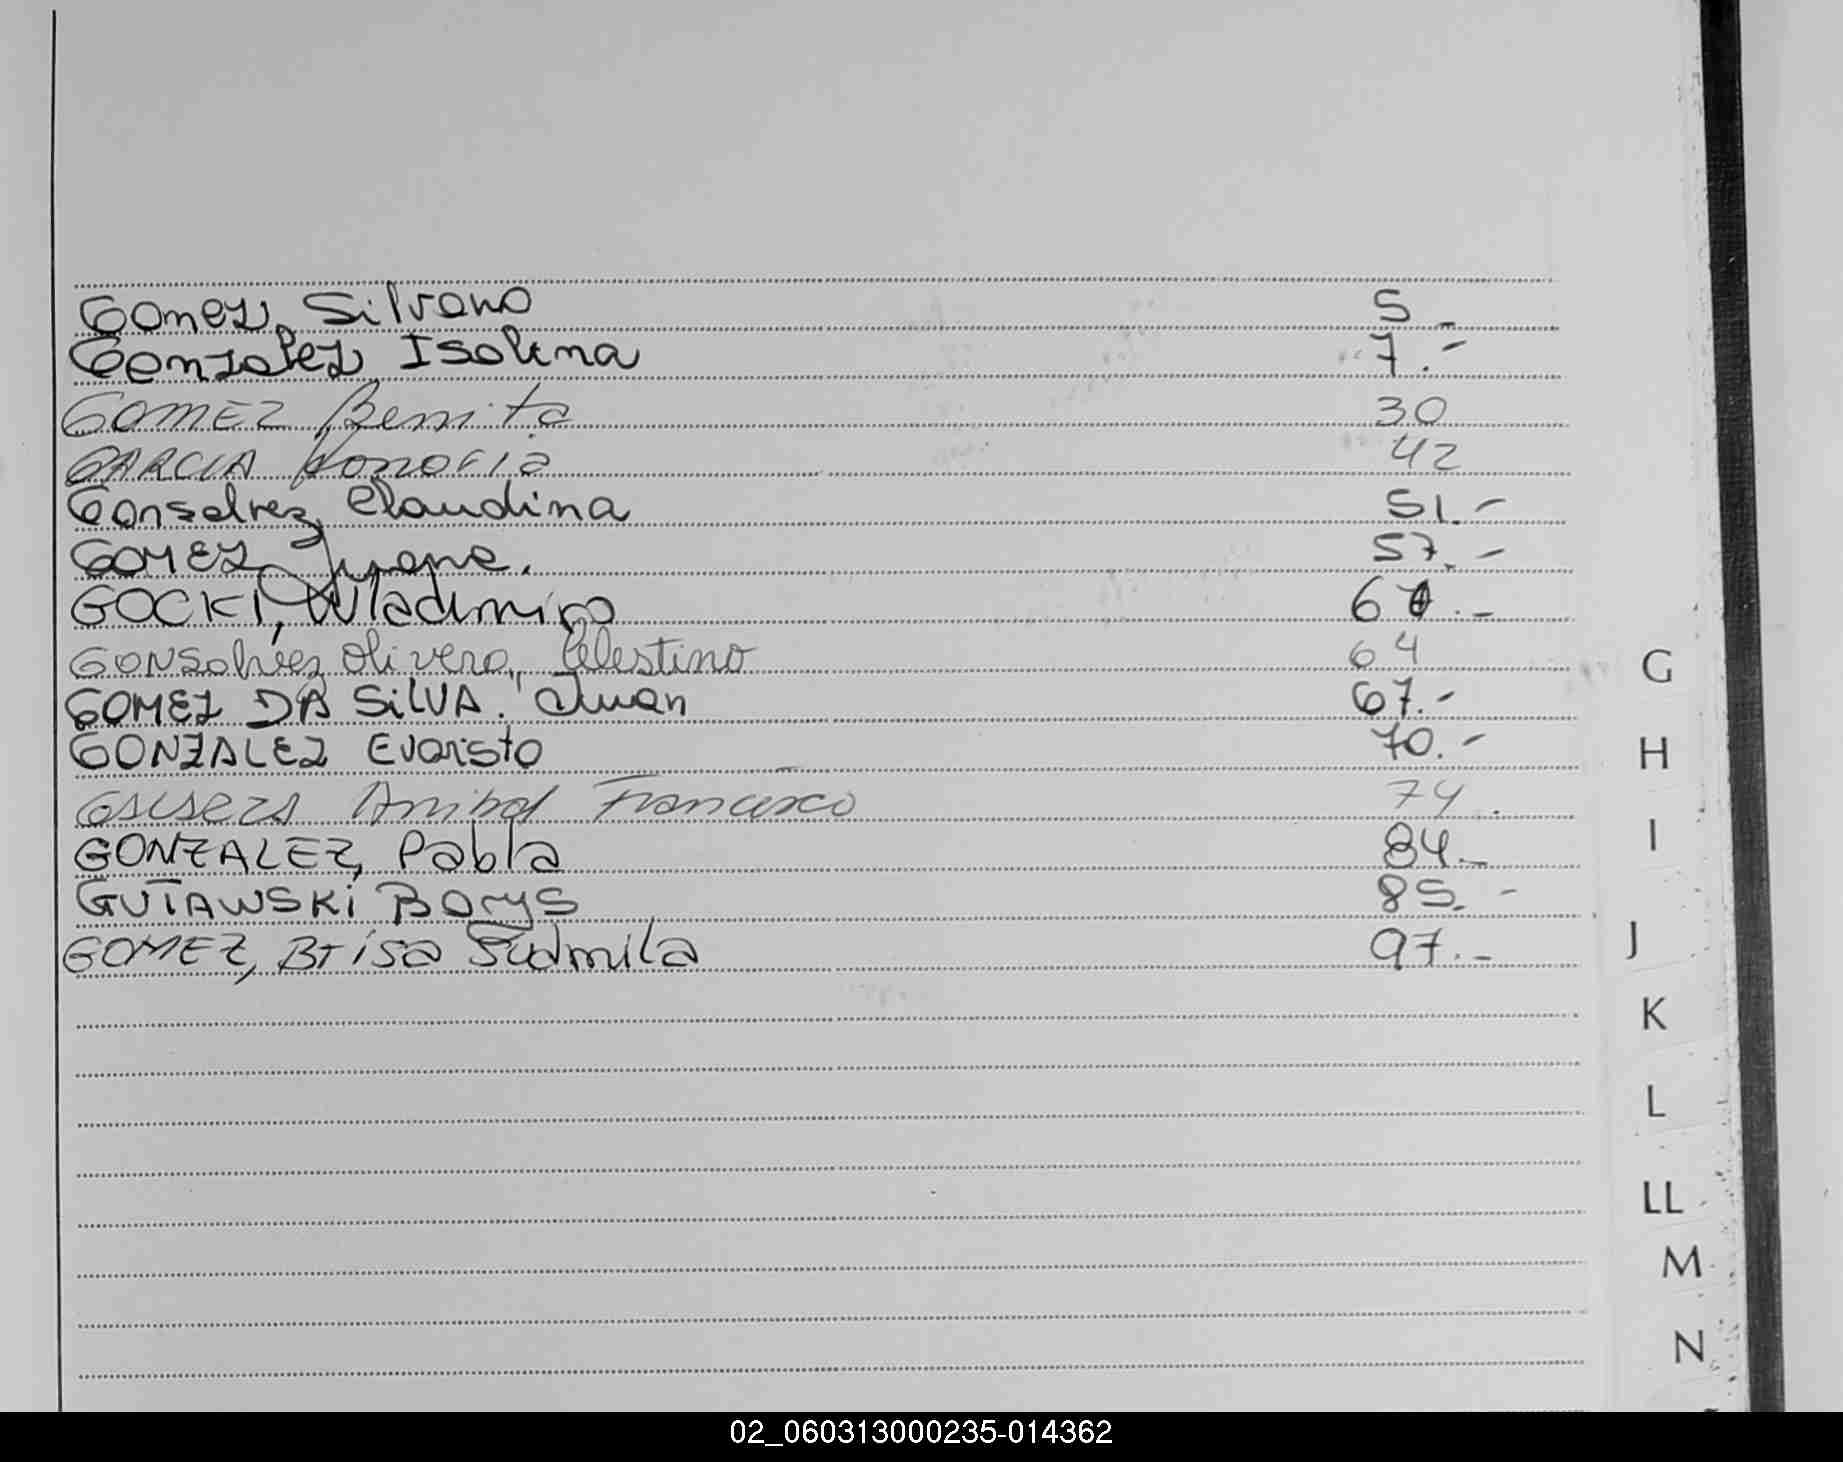 Gomez, Silvano 5 -
Gonzalez Isolina 7.-
GOMEZ Benita 30
GARCIA Honoria 42
Gonsalvez Claudina 51.-
GOMEZ Juana. 57.-
GOCKI, Wladimiro 61.-
GONSalvez Olivera, Celestino 64
GOMEZ DA SiLVA. Juan 67.-
GONZALEZ Evaristo 70.-
Anibal Francisco 74.
GONZALEZ, Pabla 84.-
GUTAWSKi Borys 85.-
GOMEZ, Brisa Ludmila 97.-
G
H
I
J
K
L
LL
M
N
02_060313000235-014362